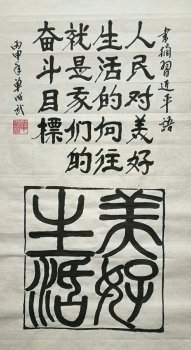 書摘習近平語
人民对美好
生活的向往
就是我们的
奋斗目標
丙申年
美好
生活